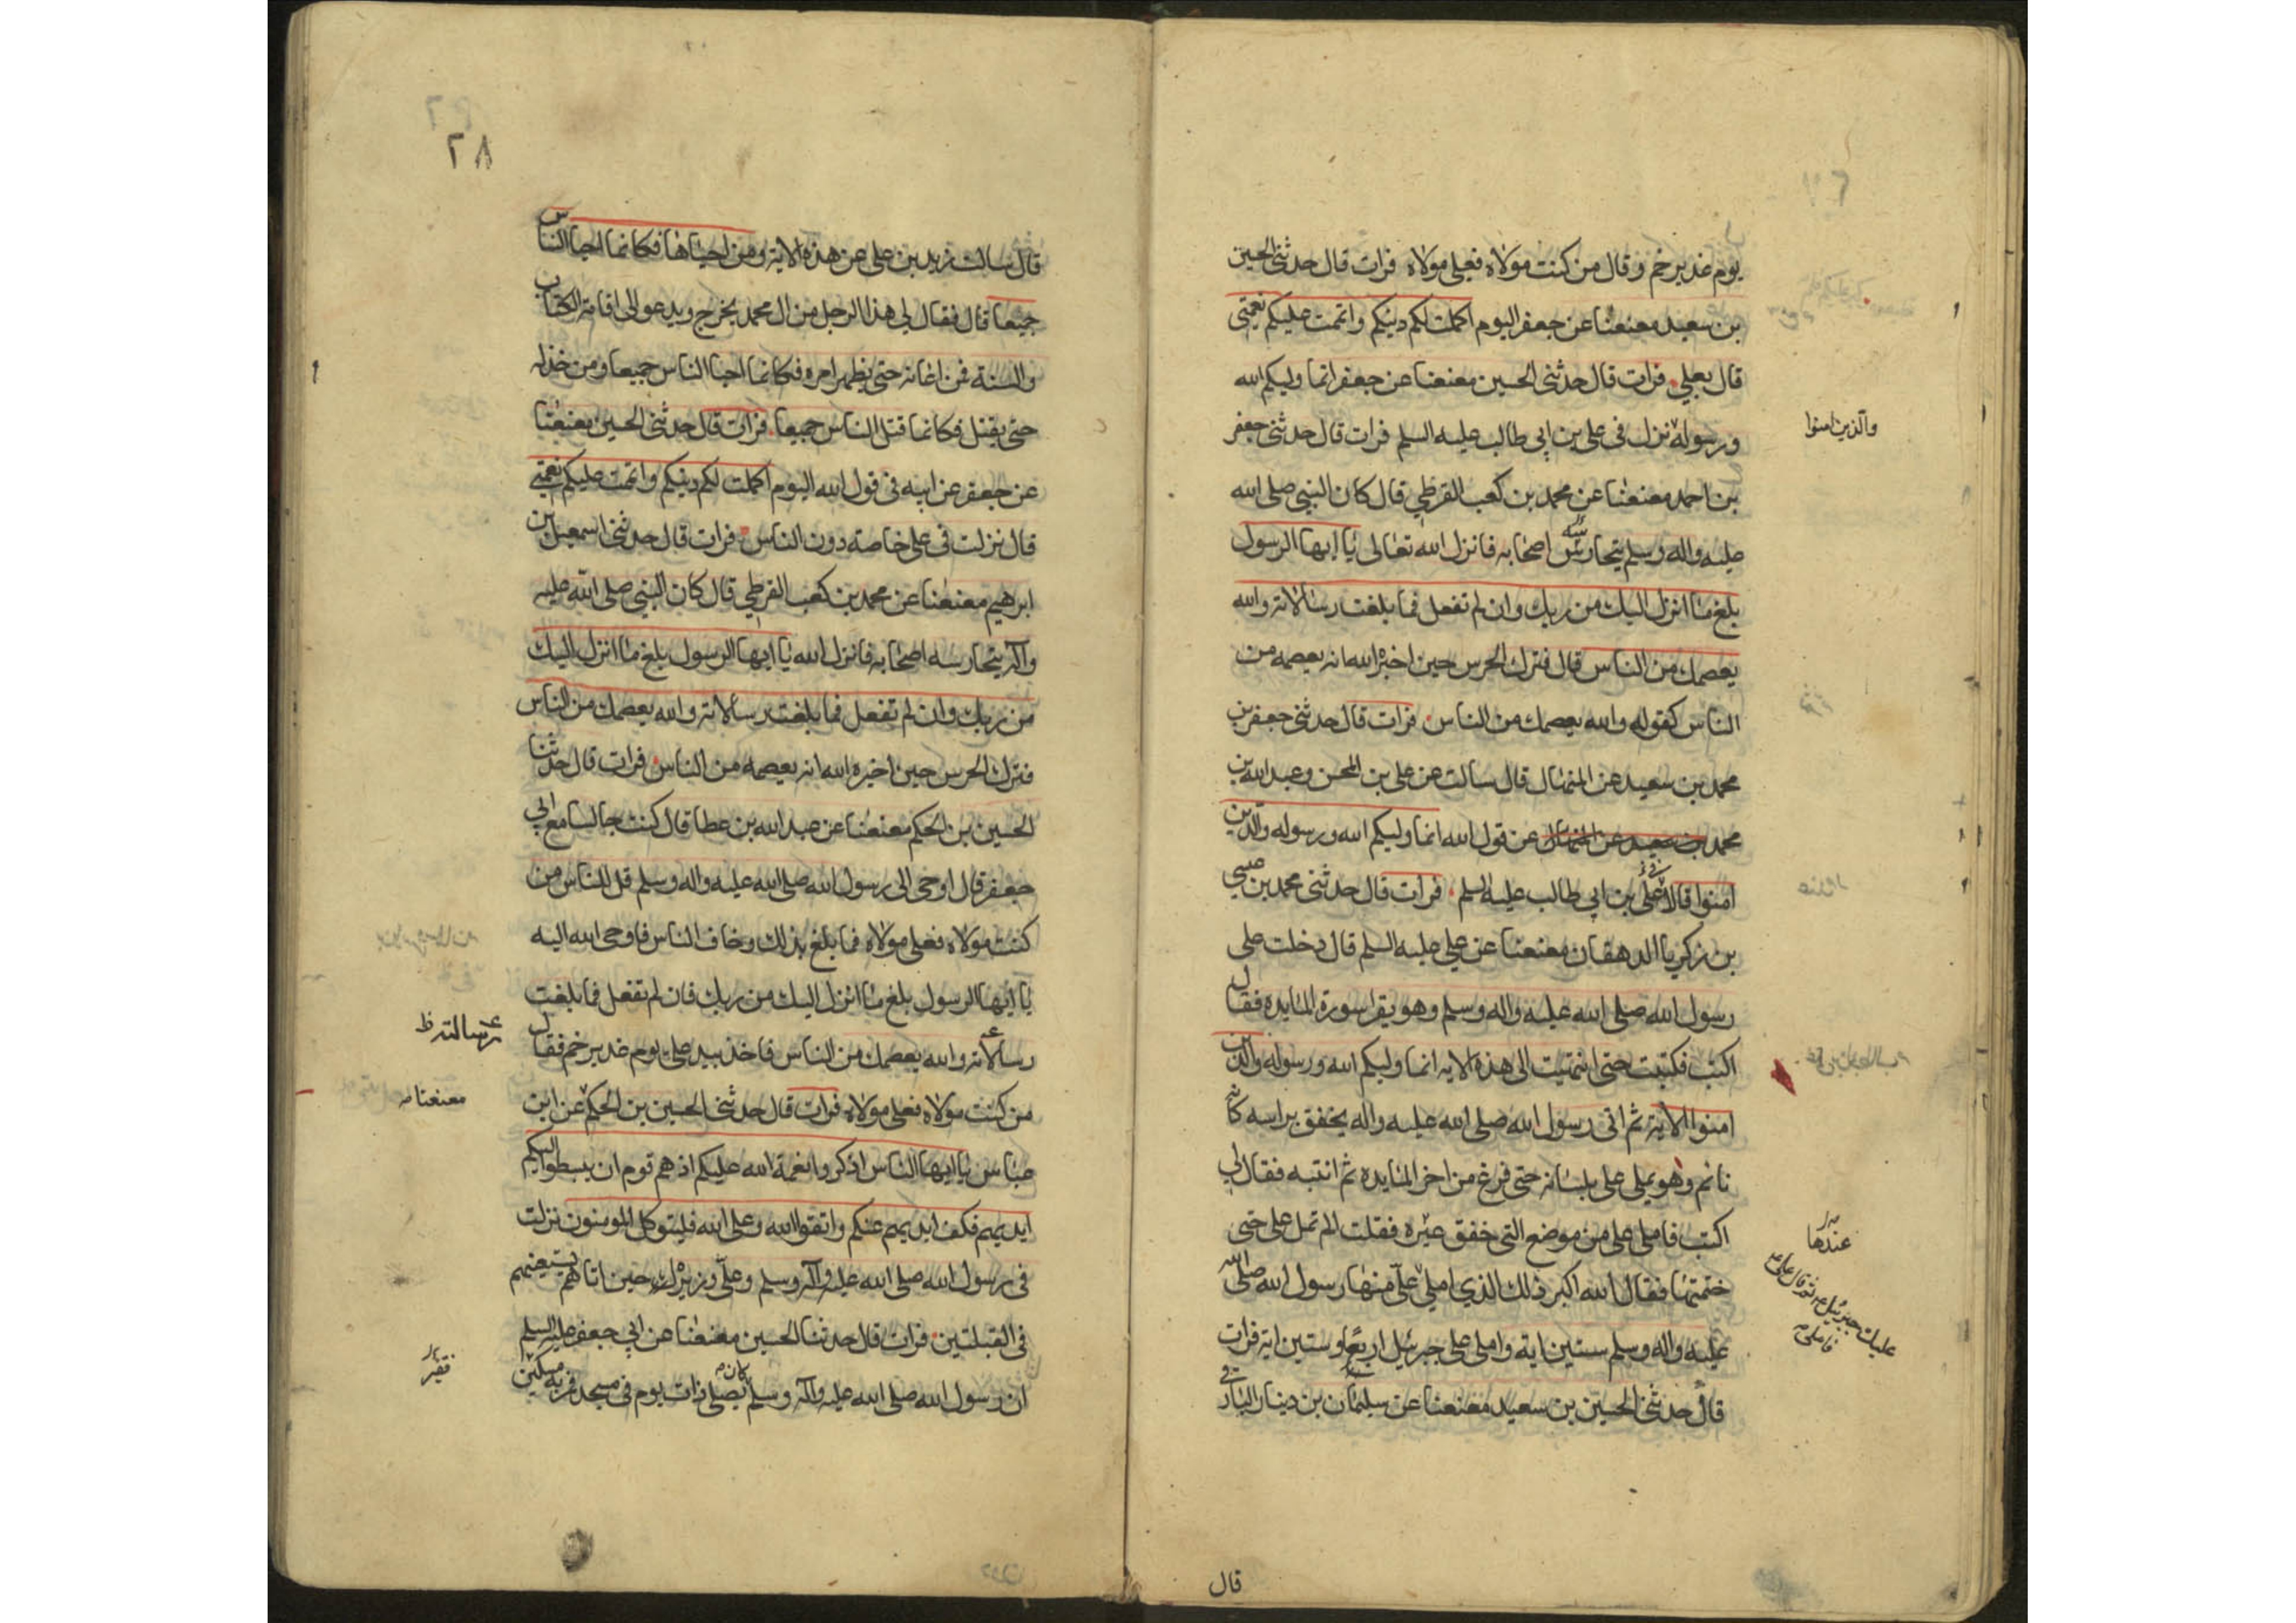 يوم غدير خم وقال من كنت مولاه فعلي مولاه فرات قال حدثني الحسين
بن سعيد معنعنا عن جعفر اليوم اكملت لكم دينكم واتممت عليكم نعمتي
قال بعلي فرات قال حدثني الحسين معنعنا عن جعفر انما وليكم الله
ورسوله نزل في علي بن ابي طالب عليه السلم فرات قال حدثني جعفر
والذين امنوا
بن احمد معنعنا عن محمد بن كعب القرظي قال كان النبي صلى الله
عليه واله وسلم يتحارسه اصحابه فانزل الله تعالى يا ايها الرسول
بلغ ما انزل اليك من ربك وان لم تفعل فما بلغت رسالاته والله
يعصمك من الناس قال فترك الحرس حين اخبره الله انه يعصمه من
الناس كقوله والله يعصمك من الناس فرات قال حدثني جعفر بن
محمد بن سعيد عن المنهال قال سالت عن علي بن الحسن وعبد الله بن
محمد بن سعيد عن المنهال عن قول الله انما وليكم الله ورسوله والذين
امنوا قالا في علي بن ابي طالب عليه السلم فرات قال حدثني محمد بن عيسى
بن زكريا الدهقان معنعنا عن علي عليه السلم قال دخلت على
رسول الله صلى الله عليه واله وسلم وهو يقرا سورة المايده فقال
اكتب فكتبت حتى انتهيت الى هذه الايه انما وليكم الله ورسوله والذين
امنوا الاية ثم اتى رسول الله صلى الله عليه واله يخفق براسه كانه
نائم وهو يملي علي بلسانه حتى فرغ من اخر المايده ثم انتبه فقال لي
اكتب فاملى علي من موضع التي خفق عنده فقلت الم تمل علي حتى
عندها
ختمتها فقال الله اكبر ذلك الذي املي علي منها رسول الله صلى الله
عليك جبرئيل ثم قال علي
فاملى
عليه واله وسلم ستين اية واملى علي جبرئيل اربعا وستين اية فرات
قال حدثني الحسين بن سعيد معنعنا عن سليمان بن دينار البارقي
قال
٢٨
قال سالت زيد بن علي عن هذه الاية ومن احياها فكانما احيا الناس
جميعا قال فقال لي هذا الرجل من ال محمد يخرج ويدعو الى اقامة الكتاب
والسنة فمن اعانه حتى يظهر امره فكانما احيا الناس جميعا ومن خذله
حتى يقتل فكانما قتل الناس جميعا فرات قال حدثني الحسين معنعنا
عن جعفر عن ابيه في قول الله اليوم اكملت لكم دينكم واتممت عليكم نعمتي
قال نزلت في علي خاصة دون الناس فرات قال حدثني اسمعيل بن
ابرهيم معنعنا عن محمد بن كعب القرظي قال كان النبي صلى الله عليه
وآله يتحارسه اصحابه فانزل الله يا ايها الرسول بلغ ما انزل اليك
من ربك وان لم تفعل فما بلغت رسالاته والله يعصمك من الناس
فترك الحرس حين اخبره الله انه يعصمه من الناس فرات قال حدثنا
الحسين بن الحكم معنعنا عن عبد الله بن عطا قال كنت جالسا مع ابي
جعفر قال اوحى الى رسول الله صلى الله عليه واله وسلم قل للناس من
كنت مولاه فعلي مولاه فما بلغ بذلك وخاف الناس فاوحى الله اليه
يا ايها الرسول بلغ ما انزل اليك من ربك فان لم تفعل فما بلغت
رسالاته والله يعصمك من الناس فاخذ بيد علي يوم غدير خم فقال
رسالته ظ
من كنت مولاه فعلي مولاه فرات قال حدثني الحسين بن الحكم عن ابن
معنعنا
عباس يا ايها الناس اذكروا نعمة الله عليكم اذ هم قوم ان يبسطوا اليكم
ايديهم فكف ايديهم عنكم واتقوا الله وعلى الله فليتوكل المومنون نزلت
في رسول الله صلى الله عليه وآله وسلم وعلي وزيره حين اتاهم يستعينهم
في القبلتين فرات قال حدثنا الحسين معنعنا عن ابي جعفر عليه السلم
ان رسول الله صلى الله عليه وآله وسلم كان يصلي ذات يوم في مسجد فمر به مسكين
فقير